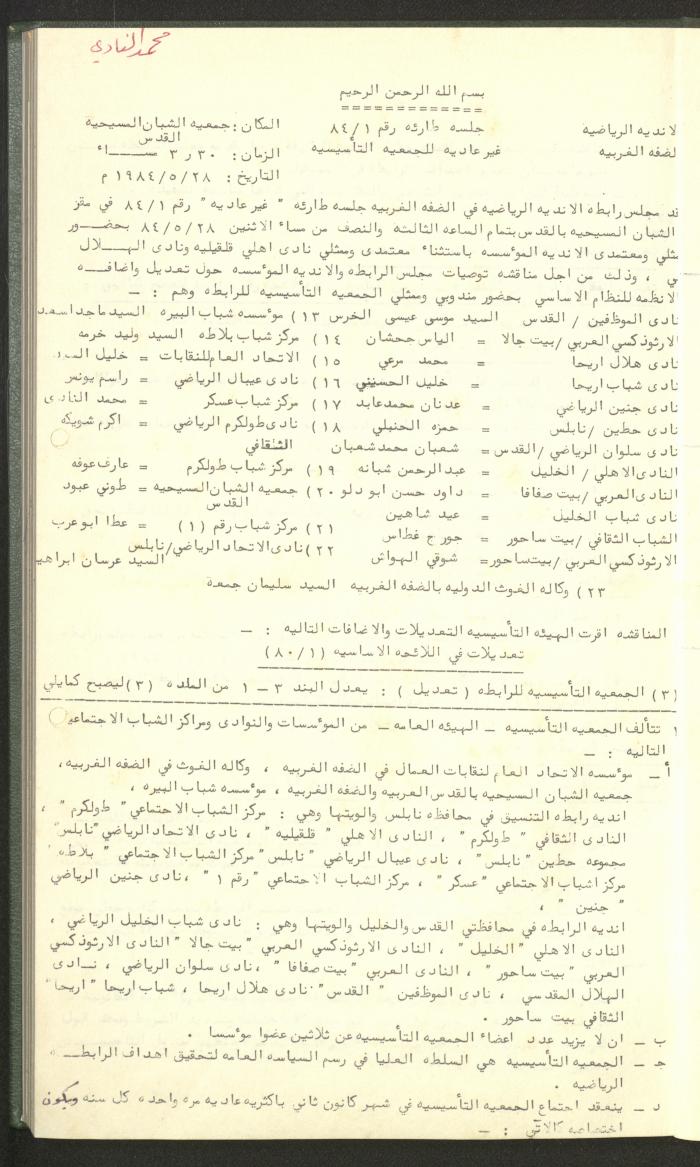 محمد النادي
بسم الله الرحمن الرحيم
لانديه الرياضيه جلسه طارئه رقم ٨٤/١ المكان : جمعيه الشبان المسيحيه
القدس
لضفه الغربيه غير عاديه للجمعيه التأسيسيه الزمان : ٣٠ ر ٣ مســـاء
التاريخ : ١٩٨٤/٥/٢٨ م
قد مجلس رابطه الانديه الرياضيه في الضفه الغربيه جلسه طارئه " غير عاديه " رقم ٨٤/١ في مقر
الشبان المسيحيه بالقدس بتمام الساعه الثالثه والنصف من مساء الاثنين ٨٤/٥/٢٨ بحضـــور
مثلي ومعتمدي الانديه المؤسسه باستثناء معتمدي وممثلي نادى اهلي قلقيليه ونادى الهـــلال
ي ، وذلك من اجل مناقشه توصيات مجلس الرابطه والانديه المؤسسه حول تعديل واضافـــه
لانظمه للنظام الاساسي بحضور مندوبي وممثلي الجمعيه التأسيسيه للرابطه وهم : ـ
نادى الموظفين / القدس السيد موسى عيسى الخرس ١٣ ) مؤسسه شباب البيره السيد ماجد اسعد
الارثوذكسي العربي /بيت جالا = الياس جحشان ١٤ ) مركز شباب بلاطه السيد وليد خرمه
نادى هلال اريحا = محمد مرعي ١٥ ) الاتحاد العام للنقابات = خليل
نادى شباب اريحا = خليل الحسيني ١٦ ) نادى عيبال الرياضي = راسم يونس
نادى جنين الرياضي = عدنان محمد عابد ١٧ ) مركز شباب عسكر = محمد النادى
نادى حطين /نابلس = حمزه الحنبلي ١٨ ) نادى طولكرم الرياضي = اكرم شويكه
نادى سلوان الرياضي /القدس = شعبان محمد شعبان الثقافي
النادى الاهلي / الخليل = عبد الرحمن شبانه ١٩ ) مركز شباب طولكرم = عارف عوفه
النادى العربي /بيت صفافا = داود حسن ابو دلو ٢٠ ) جمعيه الشبان المسيحيه = طوني عبود
القدس
نادى شباب الخليل = عيد شاهين
٢١ ) مركز شباب رقم ( ١ ) = عطا ابو عرب
الشباب الثقافي /بيت ساحور = جورج غطاس
٢٢ ) نادى الاتحاد الرياضي /نابلس
الارثوذكسي العربي /بيت ساحور = شوقي الهواش السيد عرسان ابراهيم
٢٣ ) وكاله الغوث الدوليه بالضفه الغربيه السيد سليمان جمعة
المناقشه اقرت الهيئه التأسيسيه التعديلات والاضافات التاليه : ـ
تعديلات في اللائحه الاساسيه ( ٨٠/١ )
( ٣ ) الجمعيه التأسيسيه للرابطه ( تعديل ) : يعدل البند ٣ ـ ١ من الماده ( ٣ ) ليصبح كمايلي
١ تتألف الجمعيه التأسيسيه ـ الهيئه العامه ـ من المؤسسات والنوادى ومراكز الشباب الاجتماعيه
التاليه : ـ
أ ـ مؤسسه الاتحاد العام لنقابات العمال في الضفه الغربيه ، وكاله الغوث في الضفه الغربيه،
جمعيه الشبان المسيحيه بالقدس العربيه والضفه الغربيه ، مؤسسه شباب البيره ،
انديه رابطه التنسيق في محافظه نابلس والويتها وهي : مركز الشباب الاجتماعي " طولكرم " ،
النادى الثقافي " طولكرم " ، النادى الاهلي " قلقيليه " ، نادى الاتحاد الرياضي "نابلس"
مجموعه حطين "نابلس" ، نادى عيبال الرياضي "نابلس" مركز الشباب الاجتماعي " بلاطه
مركز اشباب الاجتماعي "عسكر" ، مركز الشباب الاحتماعي "رقم ١ " ،نادى جنين الرياضي
" جنين " ،
انديه الرابطه في محافظتي القدس والخليل والويتها وهي : نادى شباب الخليل الرياضي ،
النادى الاهلي " الخليل " ، النادى الارثوذكسي العربي "بيت جالا " النادى الارثوذكسي
العربي "بيت ساحور " ، النادى العربي "بيت صفافا " ،نادى سلوان الرياضي ، نـادى
الهلال المقدسي ، نادى الموظفين " القدس" نادى هلال اريحا ، شباب اريحا "اريحا"
الثقافي بيت ساحور .
ب ـ ان لا يزيد عدد اعضاء الجمعيه التأسيسيه عن ثلاثين عضوا مؤسسا .
جـ ـ الجمعيه التأسيسيه هي السلطه العليا في رسم السياسه العامه لتحقيق اهداف الرابطـــه
الرياضيه .
د ـ ينعقد احتماع الجمعيه التأسيسيه في شهر كانون ثاني باكثريه عاديه مره واحده كل سنه ويكون
اختصاصه كالآتي : ـ